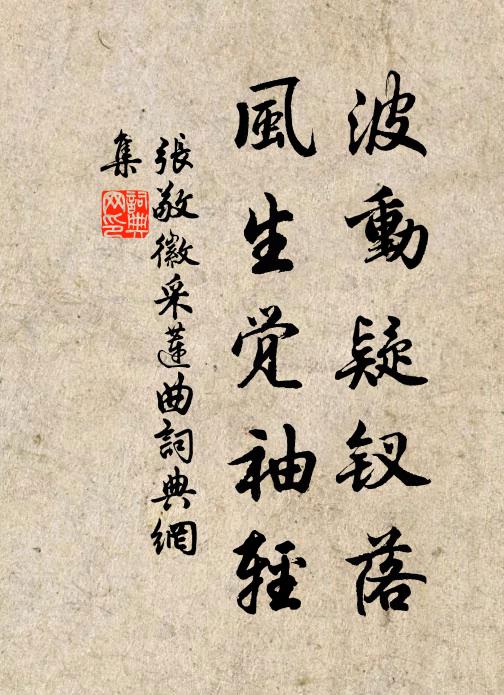 波動疑釵落
風生觉袖輕
張敬徽采蓮曲詞典網
集
詞典
网印